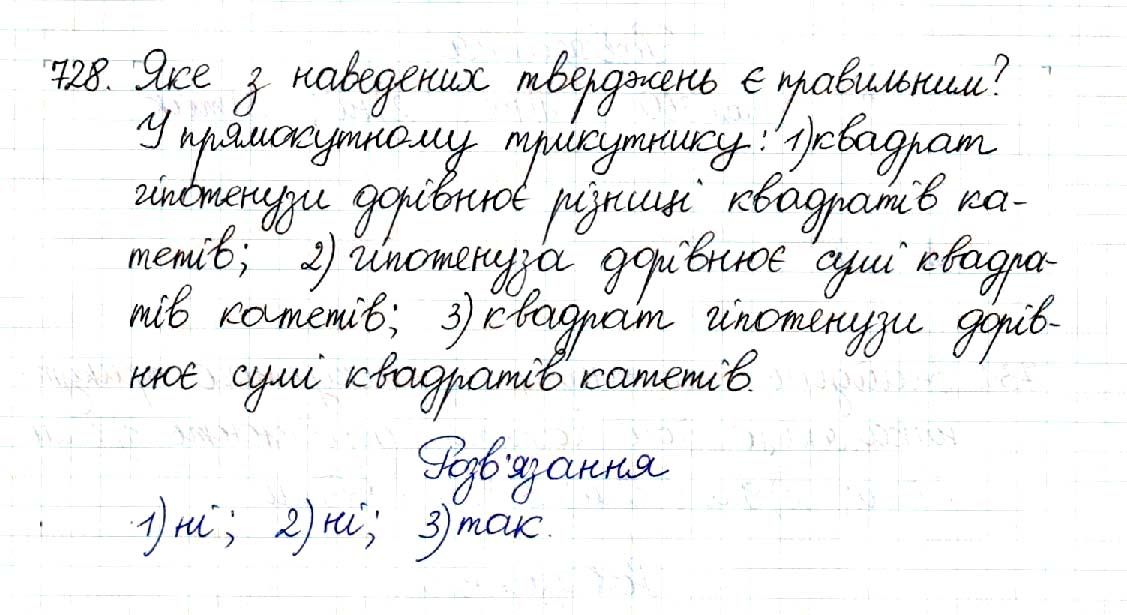 728. Яке з наведених тверджень є правильним?
У прямокутному трикутнику: 1) квадрат
гіпотенузи дорівнює різниці квадратів ка-
тетів; 2) гіпотенуза дорівнює сумі квадра-
тів катетів; 3) квадрат гіпотенузи дорів-
нює сумі квадратів катетів.
Розв'язання
1) ні; 2) ні; 3) так.